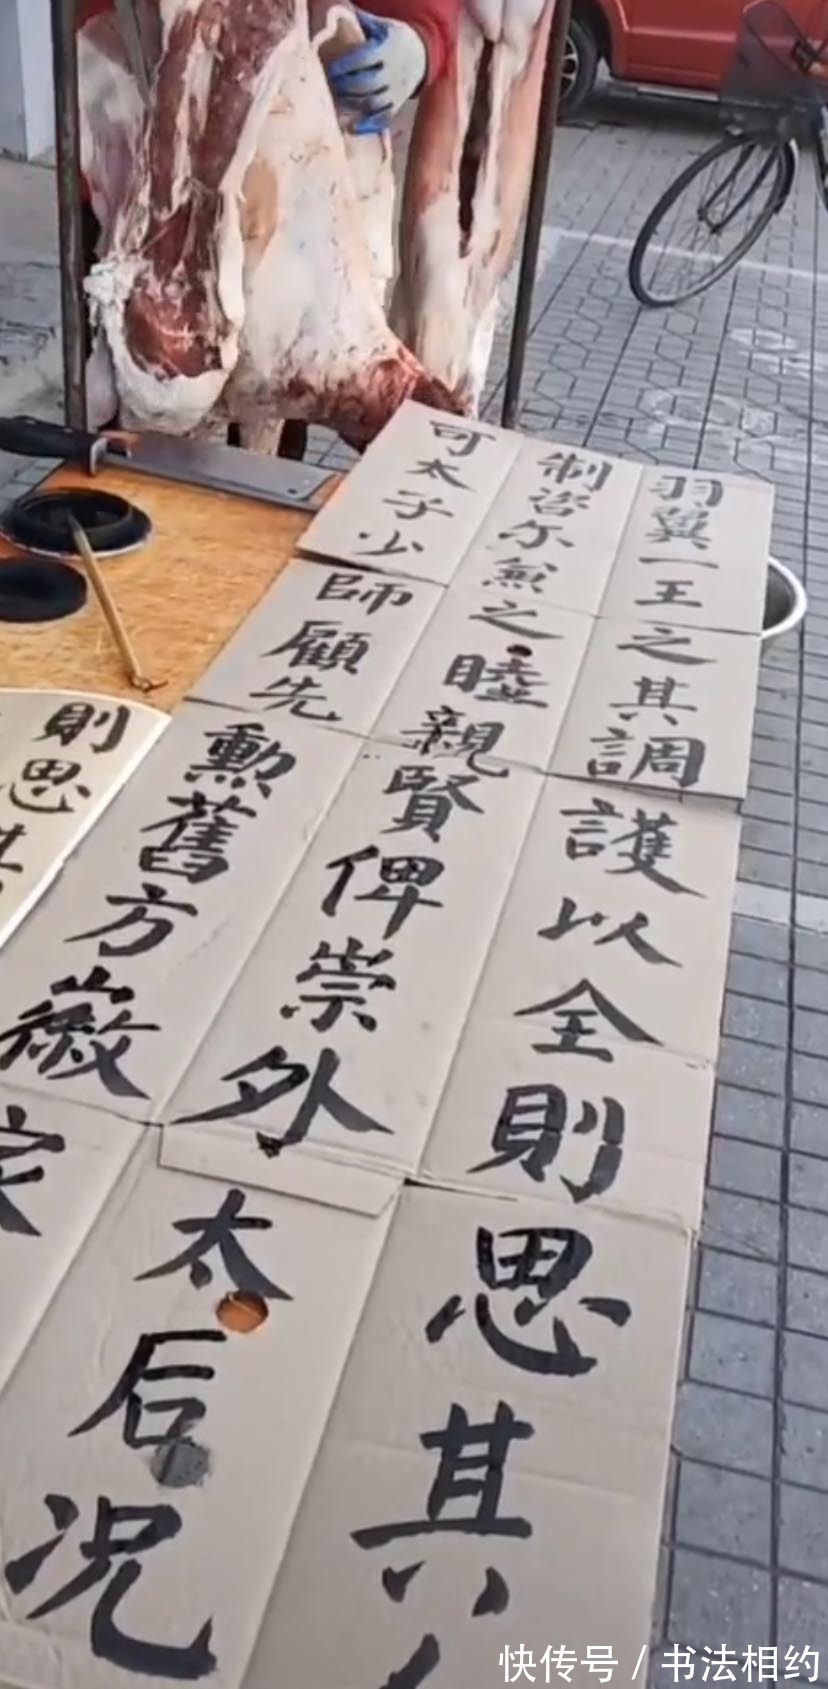 羽翼一王之其調護以全則思其
制咨尔兼之睦親賢俾崇外太后況
可太子少師顧先勳舊方徽家
則思其
快传号 / 书法相约